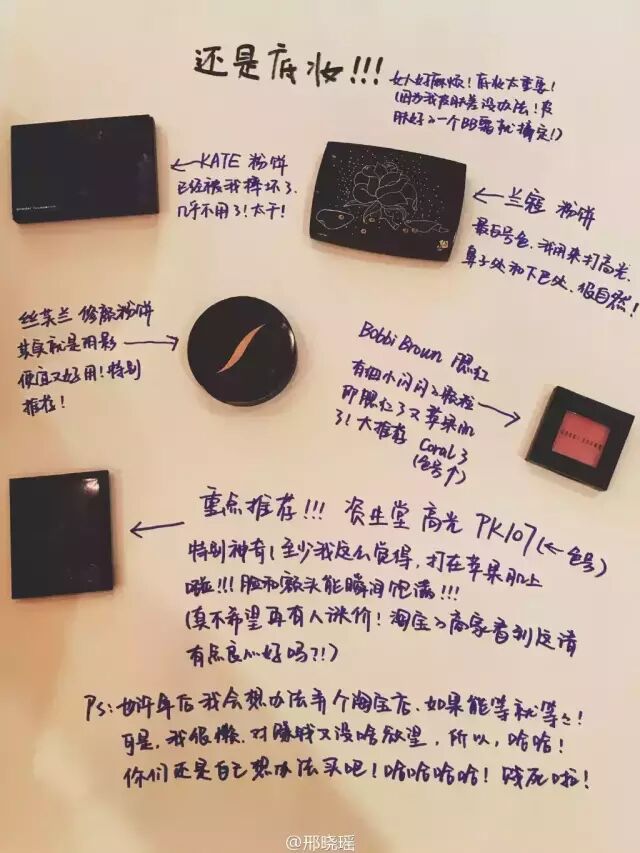 还是底妆!!!
女人好麻烦！底妆太重要！
(因为我皮肤差没办法！皮
肤好的一个BB霜就搞定!)
←KATE 粉饼
已经被我摔坏了.
几乎不用了！太干!
←兰蔻 粉饼
最白号色.我用来打高光.
鼻子处和下巴处.很自然!
丝芙兰 修颜粉饼
其实就是阴影
便宜又好用！特别
推荐!
Bobbi Brown 腮红
有细小闪闪的颗粒
即腮红了又苹果肌
了！大推荐 Coral 3
(色号↑)
BOBBI BROWN
重点推荐!!! 资生堂 高光 PK107(←色号)
特别神奇(至少我这么觉得,打在苹果肌上
啦!!!脸和额头能瞬间饱满!!!
(真不希望再有人涨价！淘宝的商家看到这请
有点良心好吗?!)
Ps:也许年后我会想办法弄个淘宝店.如果能等就等等!
可是,我很懒.对赚钱又没啥欲望,所以,哈哈!
你们还是自己想办法买吧！哈哈哈哈！贱死啦!
@邢晓瑶